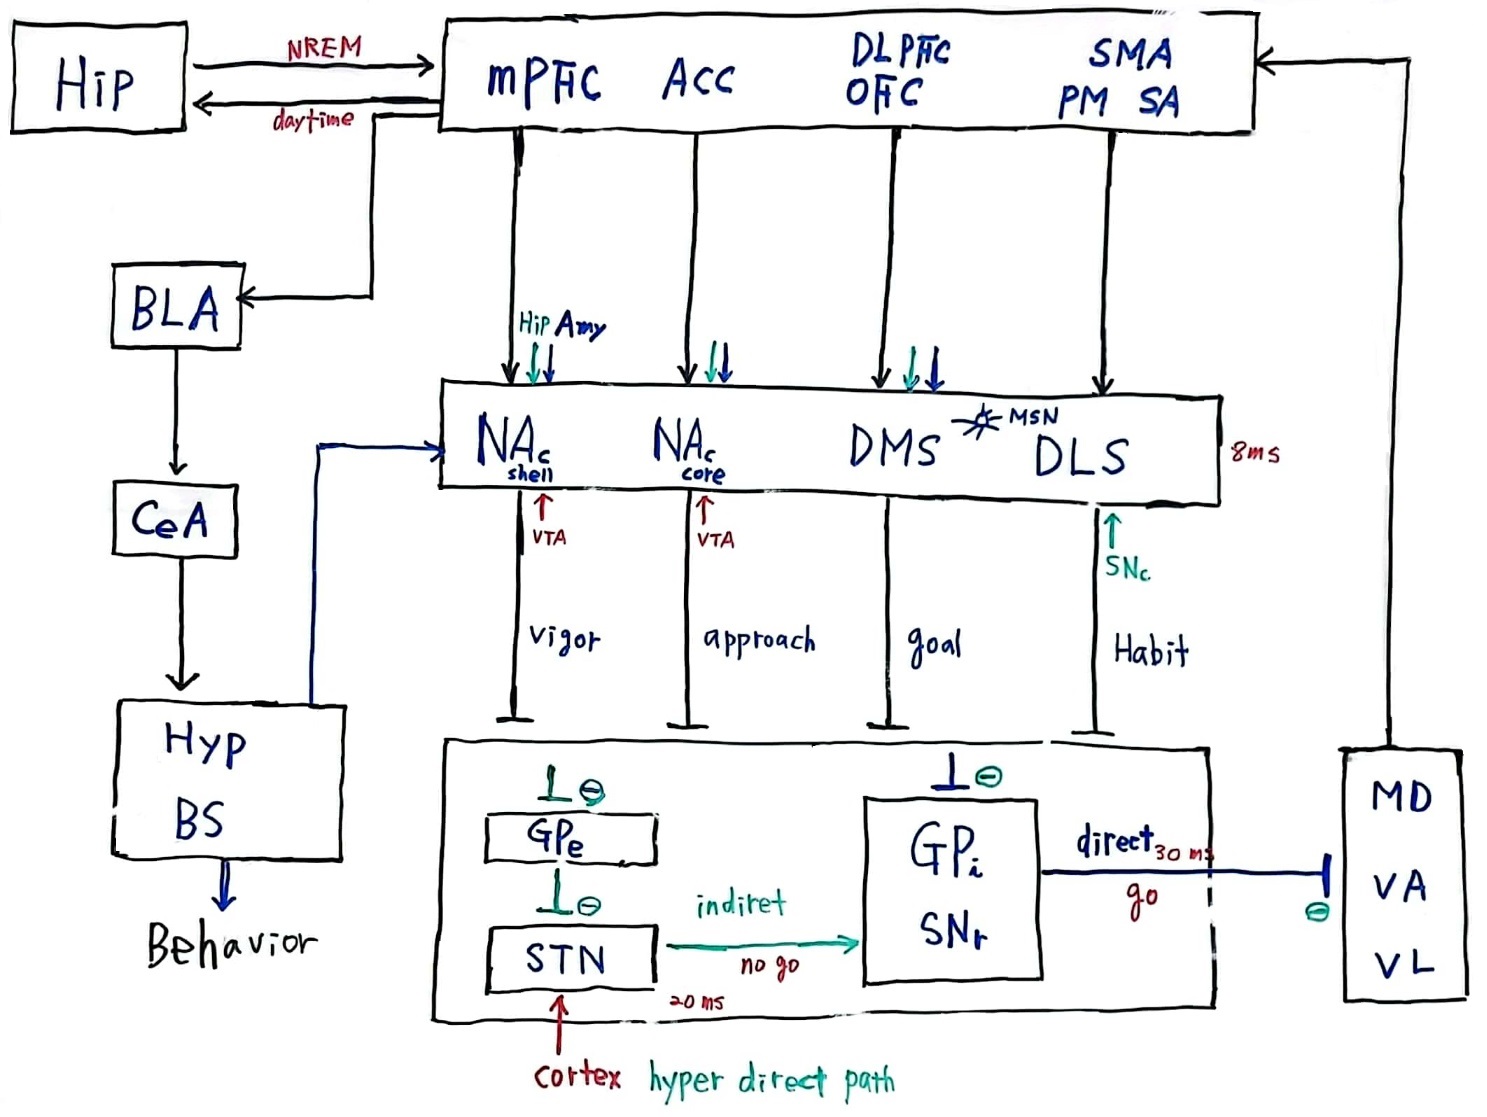 HiP
NREM
daytime
mPFC
ACC
DLPFC
OFC
SMA
PM SA
BLA
HiP Amy
NAc
shell
NAc
core
DMS
MSN
DLS
8ms
CeA
VTA
VTA
SNc
vigor
approach
goal
Habit
Hyp
BS
Behavior
GPe
STN
indiret
no go
20 ms
GPi
SNr
direct 30 ms
go
MD
VA
VL
cortex hyper direct path